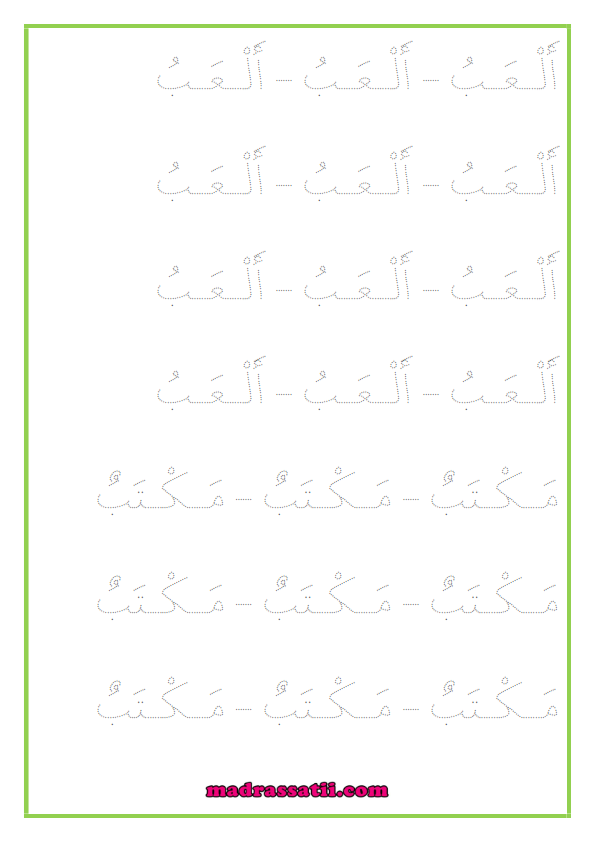 أَلْعَبُ – أَلْعَبُ – أَلْعَبُ
أَلْعَبُ – أَلْعَبُ – أَلْعَبُ
أَلْعَبُ – أَلْعَبُ – أَلْعَبُ
أَلْعَبُ – أَلْعَبُ – أَلْعَبُ
مَكْتَبٌ – مَكْتَبٌ – مَكْتَبٌ
مَكْتَبٌ – مَكْتَبٌ – مَكْتَبٌ
مَكْتَبٌ – مَكْتَبٌ – مَكْتَبٌ
madrassatii.com